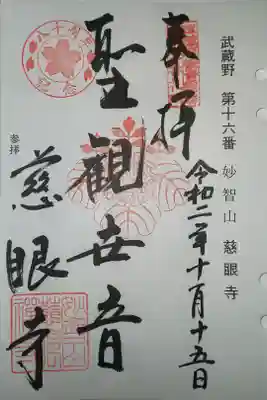 武蔵野 第十六番 妙智山 慈眼寺
奉拝
令和二年十月十五日
聖観世音
参拝
慈眼寺